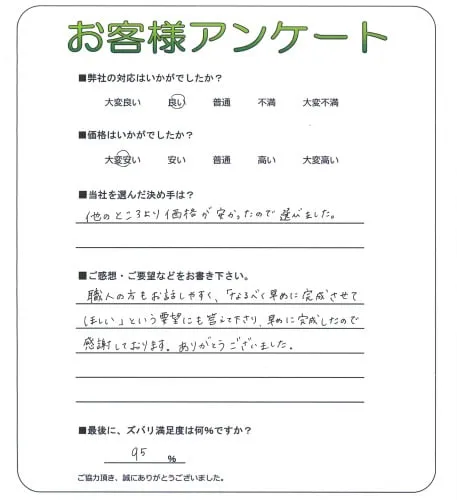 お客様アンケート
■弊社の対応はいかがでしたか？
大変良い 良い 普通 不満 大変不満
■価格はいかがでしたか？
大変安い 安い 普通 高い 大変高い
■当社を選んだ決め手は？
他のところより価格が安かったので選びました。
■ご感想・ご要望などをお書き下さい。
職人の方もお話しやすく、「なるべく早めに完成させて
ほしい」という要望にも答えて下さり、早めに完成したので
感謝しております。ありがとうございました。
■最後に、ズバリ満足度は何%ですか？
95 %
ご協力頂き、誠にありがとうございました。